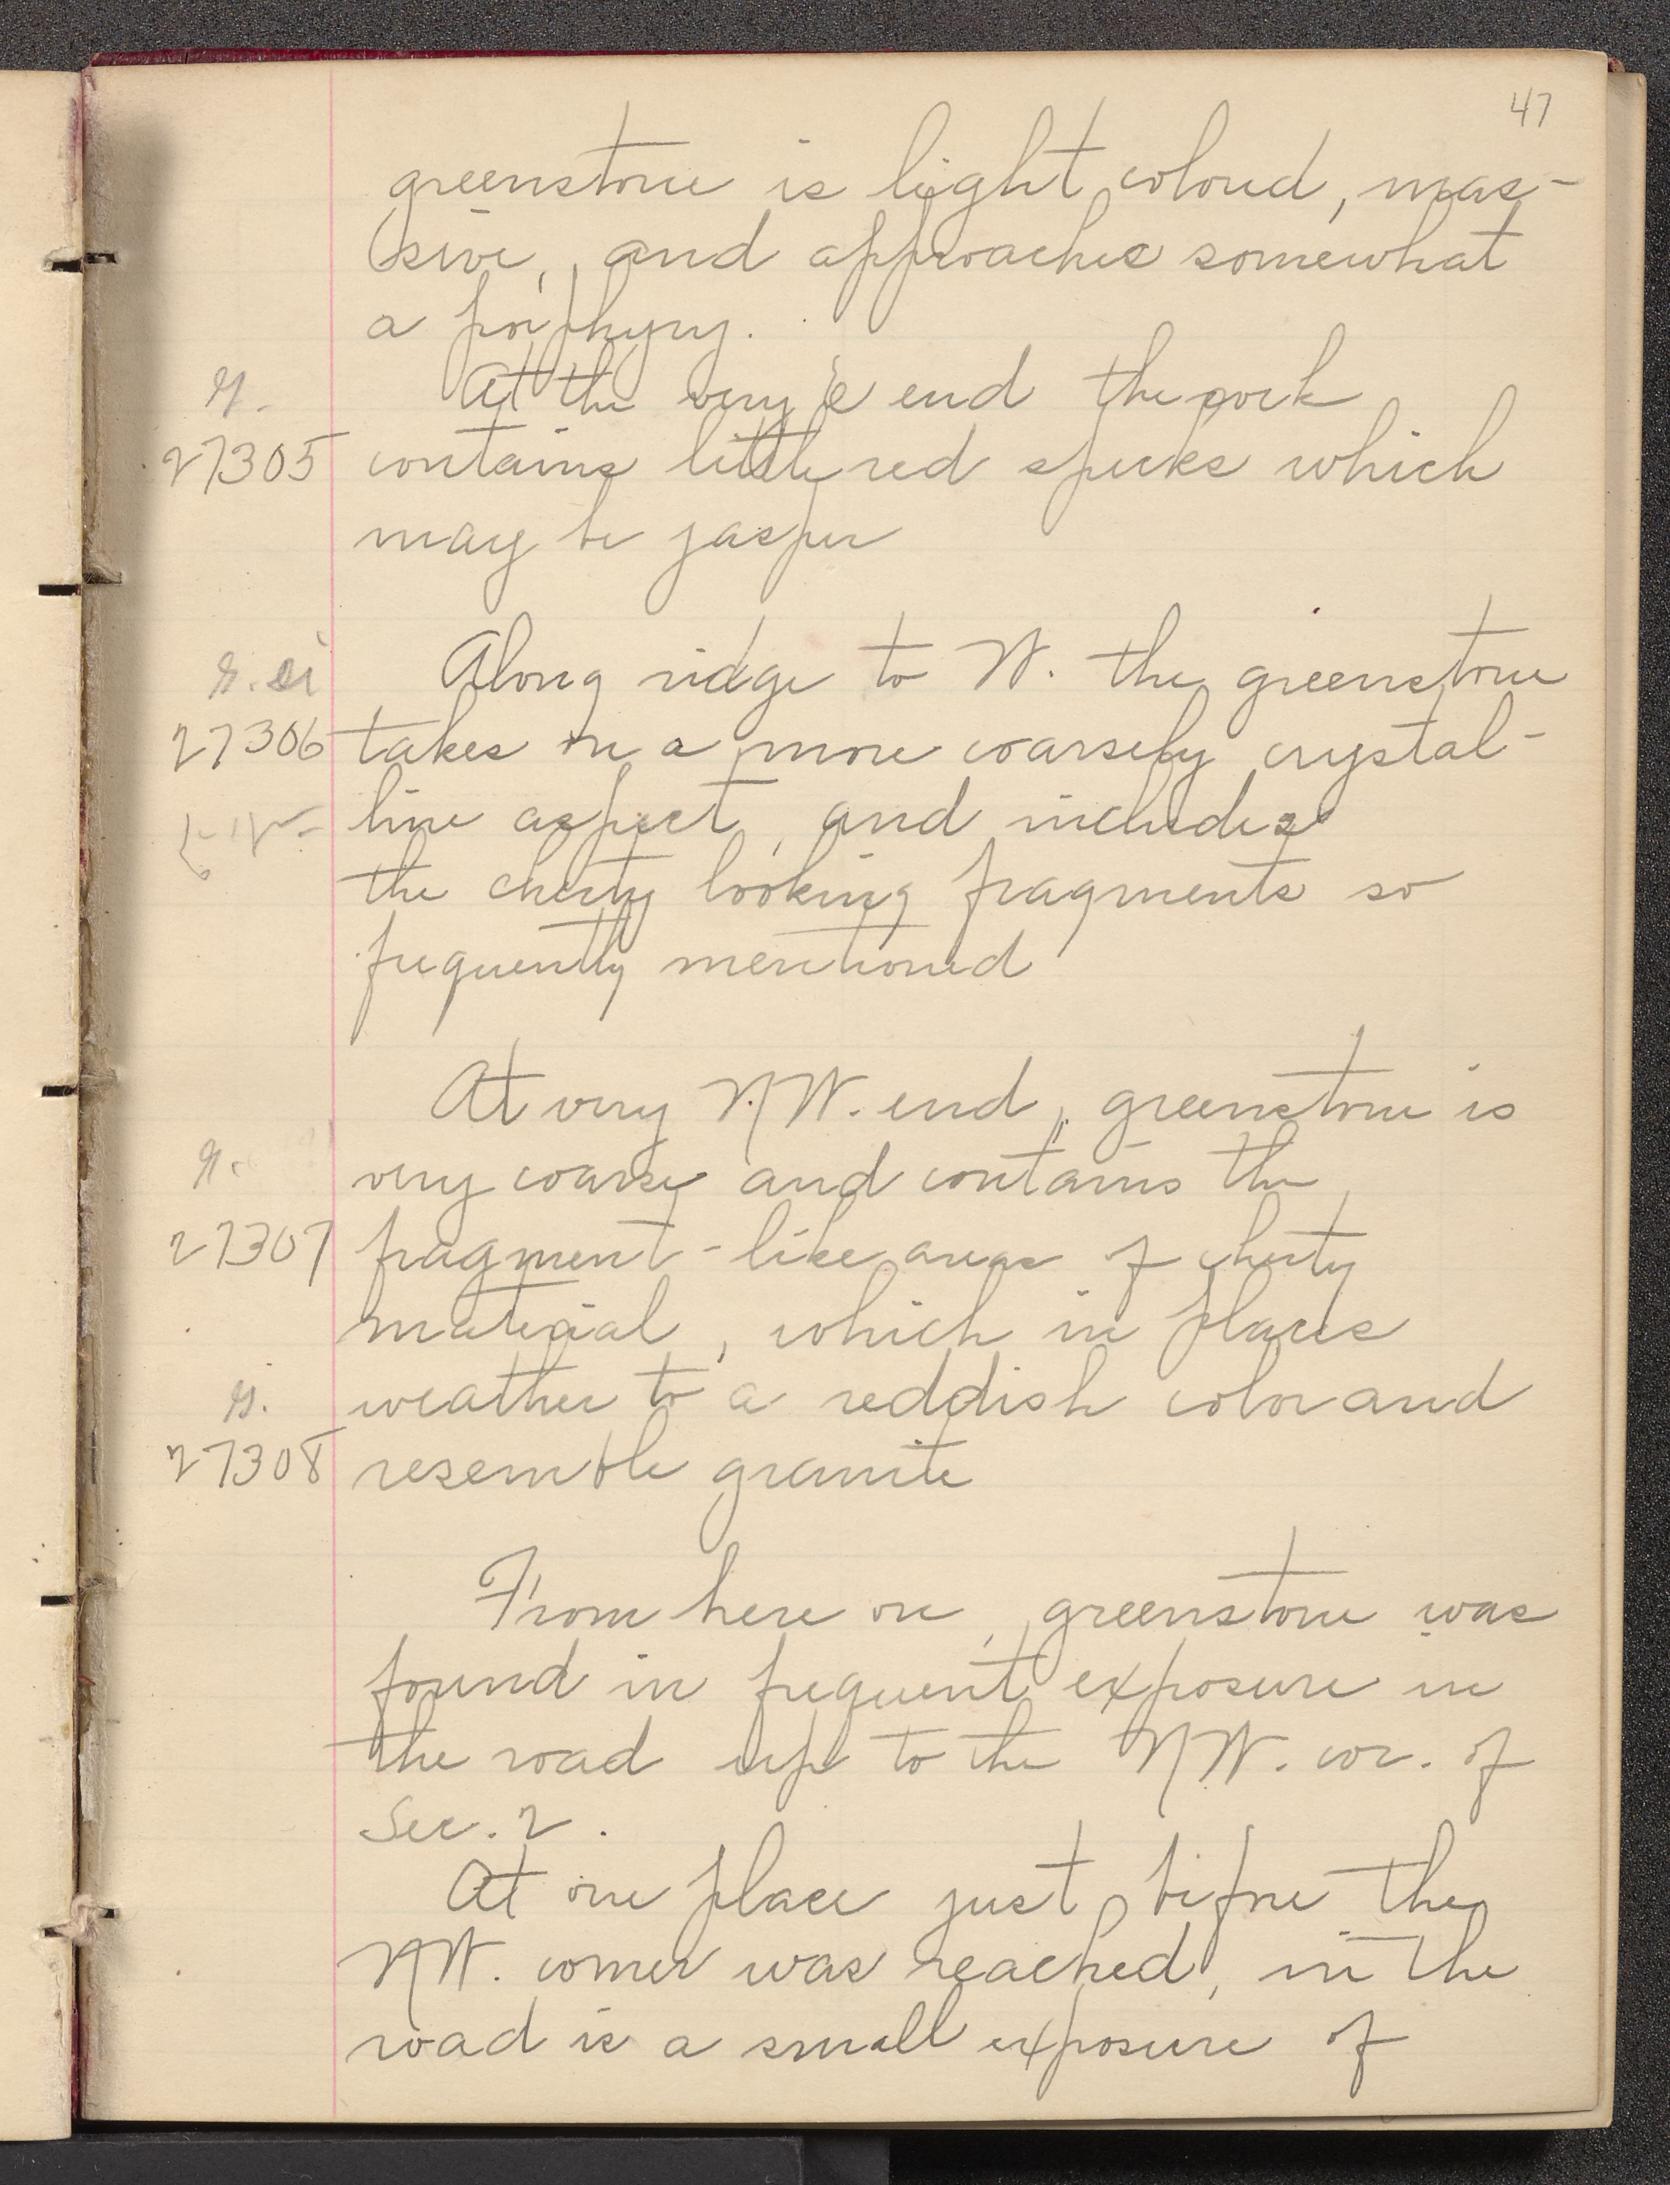 47
greenstone is light colored, mas-
sive, and approaches somewhat
a porphyry.
At the very E end the rock
27305 contains little red specks which
may be jasper
Along ridge to W. the greenstone
27306 takes on a more coarsely crystal-
line aspect, and includes
the cherty looking fragments so
frequently mentioned
At very NW. end, greenstone is
very coarse and contains the
27307 fragment-like areas of cherty
material, which in places
weather to a reddish color and
27308 resemble granite
From here on, greenstone was
found in frequent exposure in
the road up to the NW. cor. of
Sec. 2.
At one place just before the
NW. corner was reached, in the
road is a small exposure of